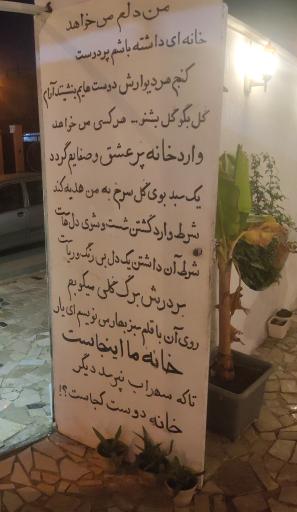 من دلم می خواهد
خانه ای داشته باشم پر دوست
کنج هر دیوارش دوست هایم بنشینند آرام
گل بگو گل بشنو... هر کسی می خواهد
وارد خانه پر عشق و صفایم گردد
یک سبد بوی گل سرخ به من هدیه کند
شرط وارد گشتن شست و شوی دل هاست
شرط آن داشتن یک دل بی رنگ و ریاست
بر درش برگ گلی میکوبم
روی آن با قلم سبز بهار می نویسم ای یار
خانه ما اینجاست
تا که سهراب نپرسد دیگر
خانه دوست کجاست؟!